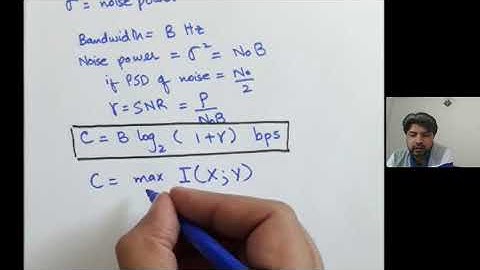 σ = noise power
Bandwidth = B Hz
Noise power = σ² = N₀B
if PSD of noise = N₀/2
γ = SNR = P/N₀B
C = B log₂ (1+γ) bps
C = max I(X;Y)